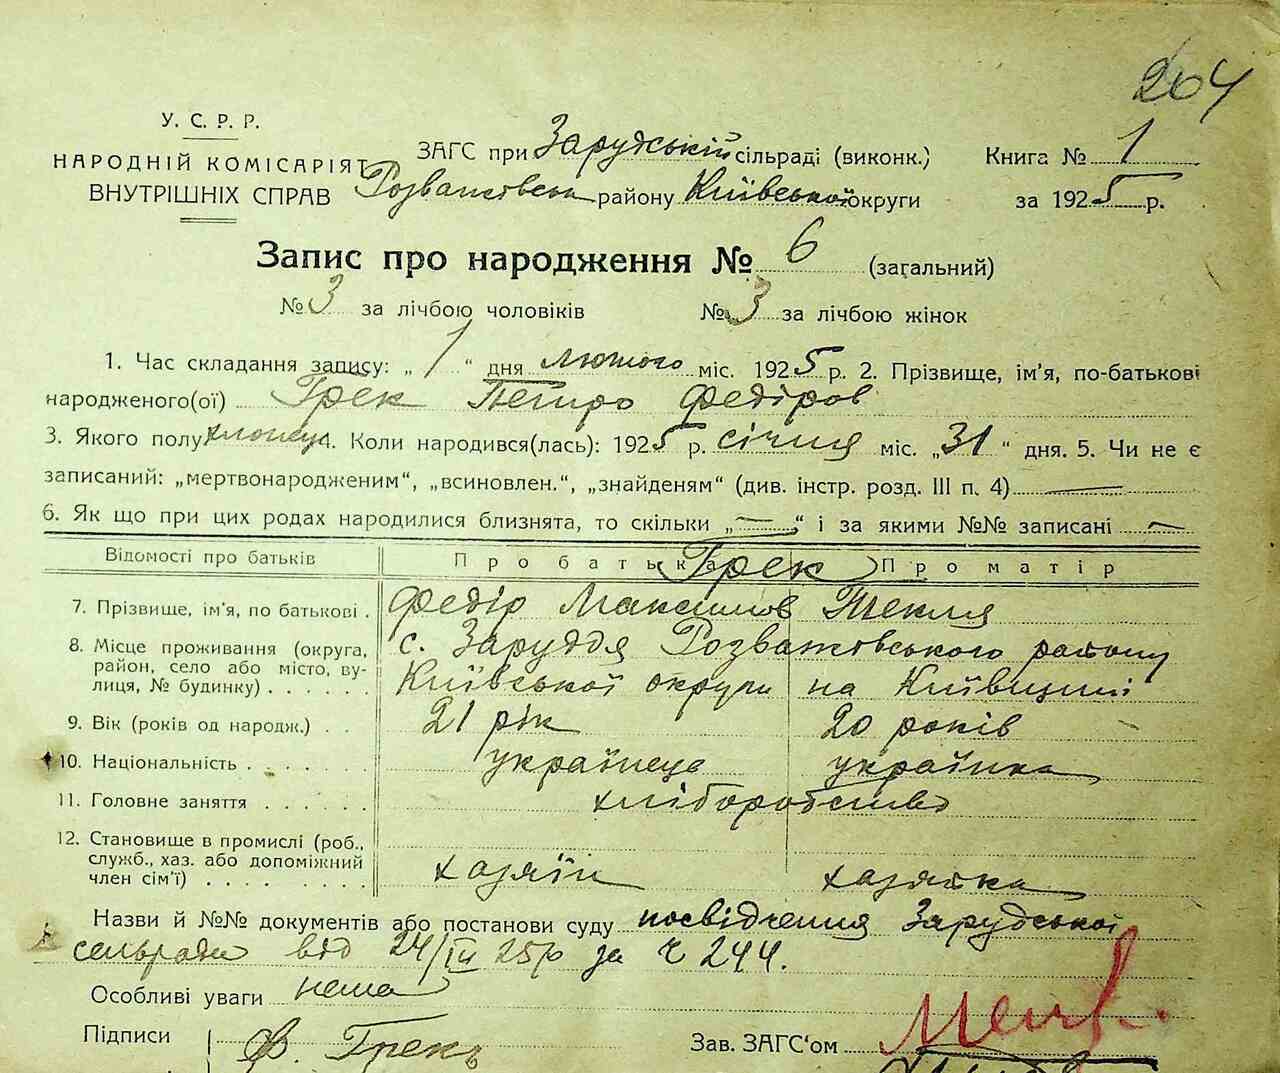 204
У. С. Р. Р.
НАРОДНІЙ КОМІСАРІЯТ
ВНУТРІШНІХ СПРАВ
ЗАГС при Зарудській сільраді (виконк.) Книга № 1
Розважівськ району Київської округи за 1925 р.
Запис про народження № 6 (загальний)
№ 3 за лічбою чоловіків № 3 за лічбою жінок
1. Час складання запису: „ 1 “ дня лютого міс. 1925 р. 2. Прізвище, ім’я, по-батькові
народженого(ої) Грек Петро Федіров
3. Якого полу хлопець 4. Коли народився(лась): 1925 р. січня міс. „31“ дня. 5. Чи не є
записаний: „мертвонародженим“, „всиновлен.“, „знайденям“ (див. інстр. розд. III п. 4) —
6. Як що при цих родах народилися близнята, то скільки „—“ і за якими №№ записані —
Відомості про батьків Про батька Грек Про матір
7. Прізвище, ім’я, по батькові . Федір Максимов Текля
8. Місце проживання (округа, с. Заруддя Розважівського району
район, село або місто, ву-
лиця, № будинку) . . . . . . Київської округи на Київщині
9. Вік (років од народж.) . . 21 рік 20 років
10. Національність . . . . . . українець українка
11. Головне заняття . . . . . . хліборобство
12. Становище в промислі (роб.,
служб., хаз. або допоміжний
член сім’ї) . . . . . . . . хазяїн хазяйка
Назви й №№ документів або постанови суду посвідчення Зарудської
сельради від 24/III 25р за ч 244.
Особливі уваги нема
Підписи Ф. Грек Зав. ЗАГС‘ом